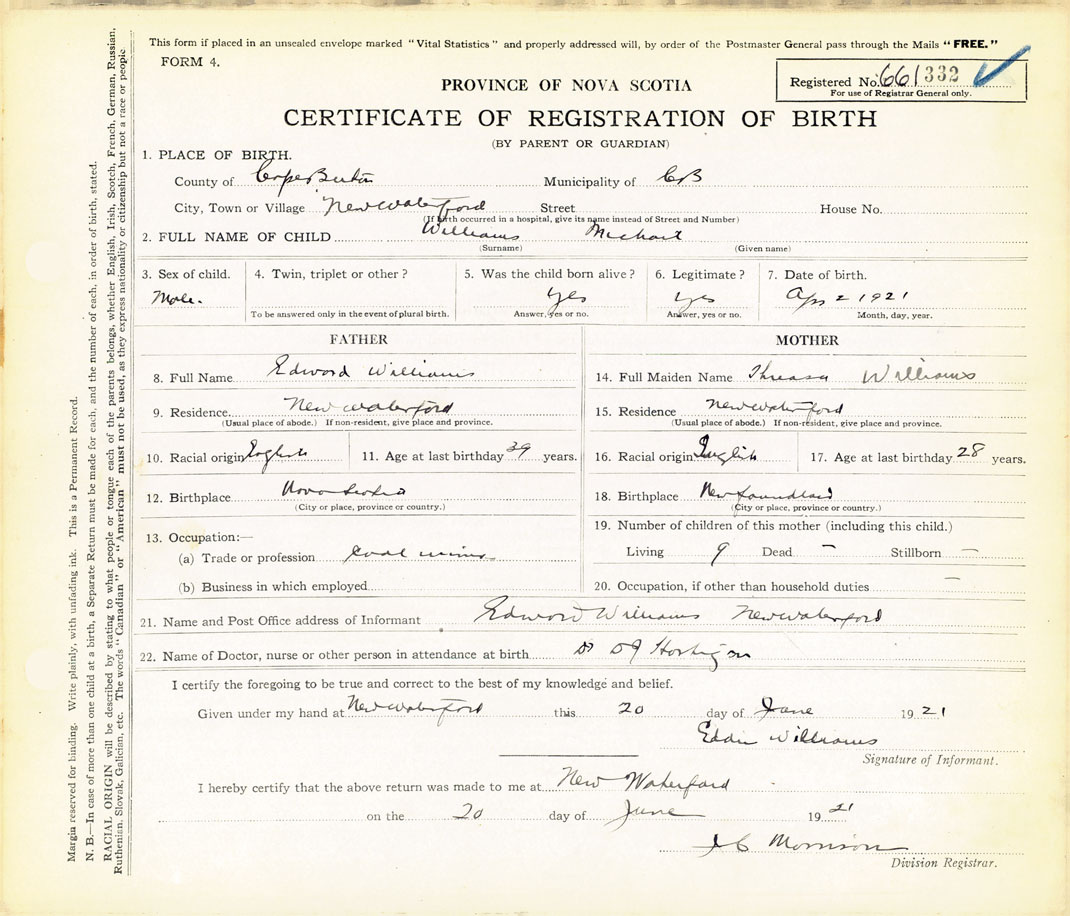 This form if placed in an unsealed envelope marked "Vital Statistics" and properly addressed will, by order of the Postmaster General pass through the Mails "FREE."
FORM 4.
Registered No. 661332
For use of Registrar General only.
PROVINCE OF NOVA SCOTIA
CERTIFICATE OF REGISTRATION OF BIRTH
(BY PARENT OR GUARDIAN)
1. PLACE OF BIRTH.
County of Cape Breton Municipality of CB
City, Town or Village New Waterford Street House No.
(If birth occurred in a hospital, give its name instead of Street and Number)
2. FULL NAME OF CHILD Williams Michael
(Surname) (Given name)
3. Sex of child. 4. Twin, triplet or other? 5. Was the child born alive? 6. Legitimate? 7. Date of birth.
Male. yes yes Apr 2 1921
To be answered only in the event of plural birth. Answer, yes or no. Answer, yes or no. Month, day, year.
FATHER MOTHER
8. Full Name Edword Williams 14. Full Maiden Name Threasa Williams
9. Residence New Waterford 15. Residence New Waterford
(Usual place of abode.) If non-resident, give place and province. (Usual place of abode.) If non-resident, give place and province.
10. Racial origin English 11. Age at last birthday 39 years. 16. Racial origin English 17. Age at last birthday 28 years.
12. Birthplace Nova Scotia 18. Birthplace Newfoundland
(City or place, province or country.) (City or place, province or country.)
13. Occupation:— 19. Number of children of this mother (including this child.)
(a) Trade or profession Coal miner Living 9 Dead – Stillborn –
(b) Business in which employed 20. Occupation, if other than household duties –
21. Name and Post Office address of Informant Edword Williams New Waterford
22. Name of Doctor, nurse or other person in attendance at birth Dr DJ
I certify the foregoing to be true and correct to the best of my knowledge and belief.
Given under my hand at New Waterford this 20 day of June 1921
Williams
Signature of Informant.
I hereby certify that the above return was made to me at New Waterford
on the 20 day of June 1921
Morrison
Division Registrar.
Margin reserved for binding. Write plainly, with unfading ink. This is a Permanent Record.
N. B.—In case of more than one child at a birth, a Separate Return must be made for each, and the number of each, in order of birth, stated.
RACIAL ORIGIN will be described by stating to what people or tongue each of the parents belongs, whether English, Irish, Scotch, French, German, Russian,
Ruthenian, Slovak, Galician, etc. The words "Canadian" or "American" must not be used, as they express nationality or citizenship but not a race or people